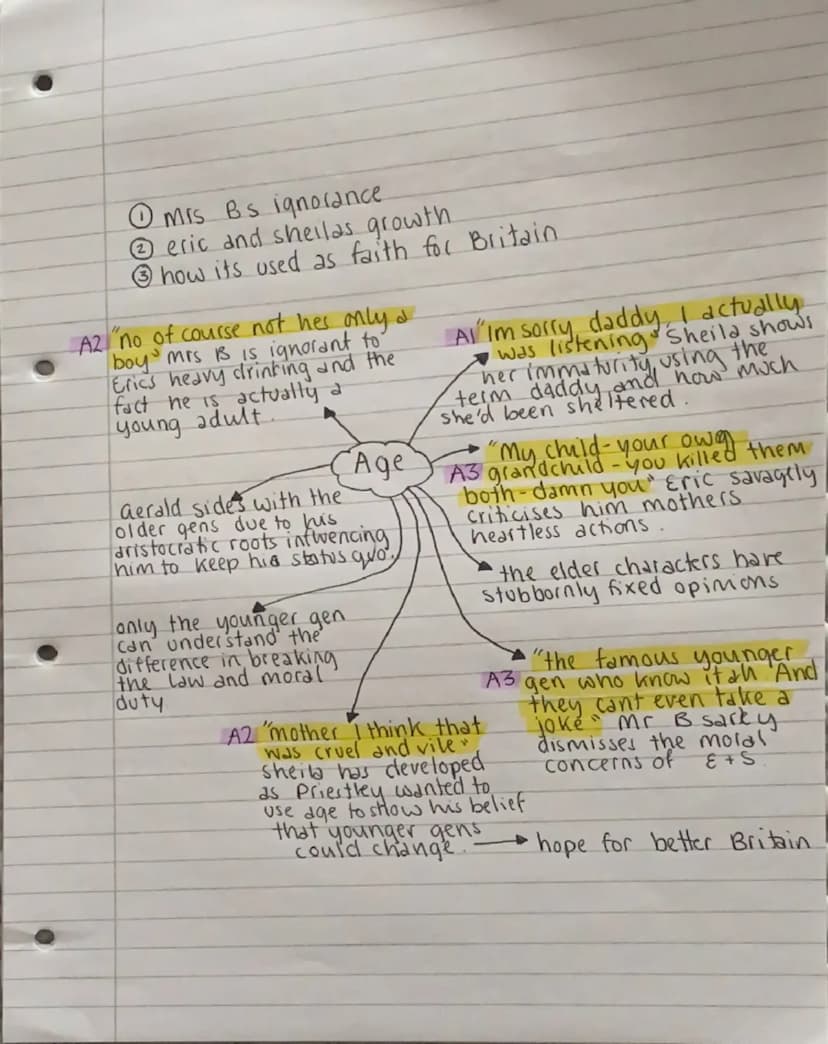 ① mrs Bs ignorance
② eric and sheilas growth
③ how its used as faith for Britain
A2 "no of course not hes only a
boy" mrs B is ignorant to
Erics heavy drinking and the
fact he is actually a
young adult.
A1 "Im sorry, daddy, I actually
was listening" Sheila shows
her immaturity, using the
term daddy and how much
she'd been sheltered.
Age
"My child-your own
A3 grandchild-you killed them
both-damn you" Eric savagely
criticises him mothers
heartless actions.
Gerald sides with the
older gens due to his
aristocratic roots influencing
him to keep his status quo.
the elder characters have
stubbornly fixed opinions
only the younger gen
can understand the
difference in breaking
the law and moral
duty
"the famous younger
A3 gen who know it all. And
they cant even take a
joke" Mr B sarky
dismisses the moral
concerns of E+S
A2 "mother I think that
was cruel and vile"
Sheila has developed
as Priestley wanted to
use age to show his belief
that younger gens
could change. → hope for better Britain